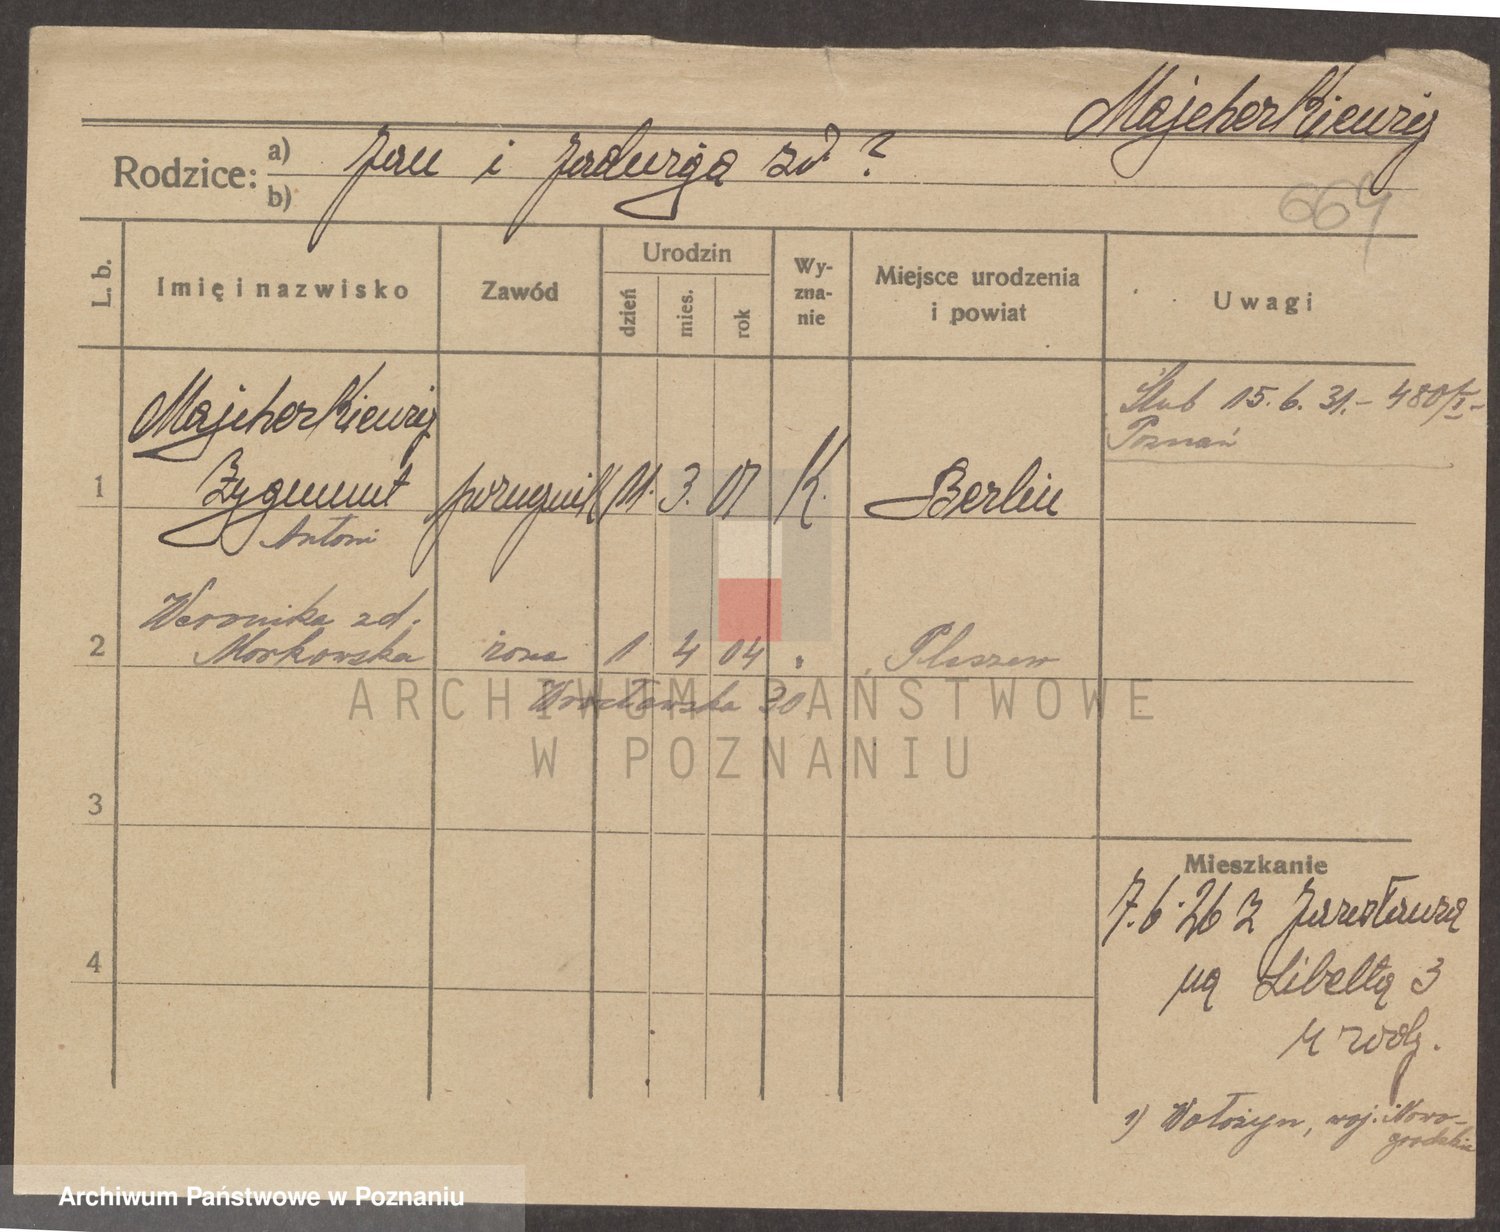 Majcherkiewicz
Rodzice: a) Jan i Jadwiga zd. ?
b)
664
L. b.
Imię i nazwisko
Zawód
Urodzin
dzień
mies.
rok
Wy-
zna-
nie
Miejsce urodzenia
i powiat
Uwagi
Majcherkiewicz
1 Zygmunt porucznik 11. 3. 07 K. Berlin
Antoni
Ślub 15. 6. 31. - 480/I -
Poznań
Weronika zd.
2 Morkowska żona 1 4 04 " Pleszew
Wrocławska 30.
ARCHIWUM PAŃSTWOWE
W POZNANIU
3
4
Mieszkanie
7. 6. 26 z Jarosławia
na Libelta 3
u rodz.
1) Wołożyn, woj. Nowo-
grodzkie
Archiwum Państwowe w Poznaniu